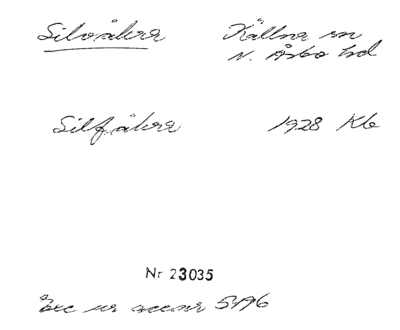 Silvåkra Källna sn
N. Åsbo hd
Silfåkra 1928 Kb
Nr 23035
Exc ur acc.nr 5496